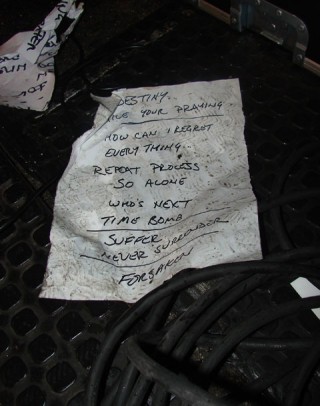 DESTINY..
YOUR PRAYING
HOW CAN I REGRET
EVERYTHING..
REPEAT PROCESS
SO ALONE
WHO'S NEXT
TIME BOMB
SUFFER
NEVER SURRENDER
FORSAKEN